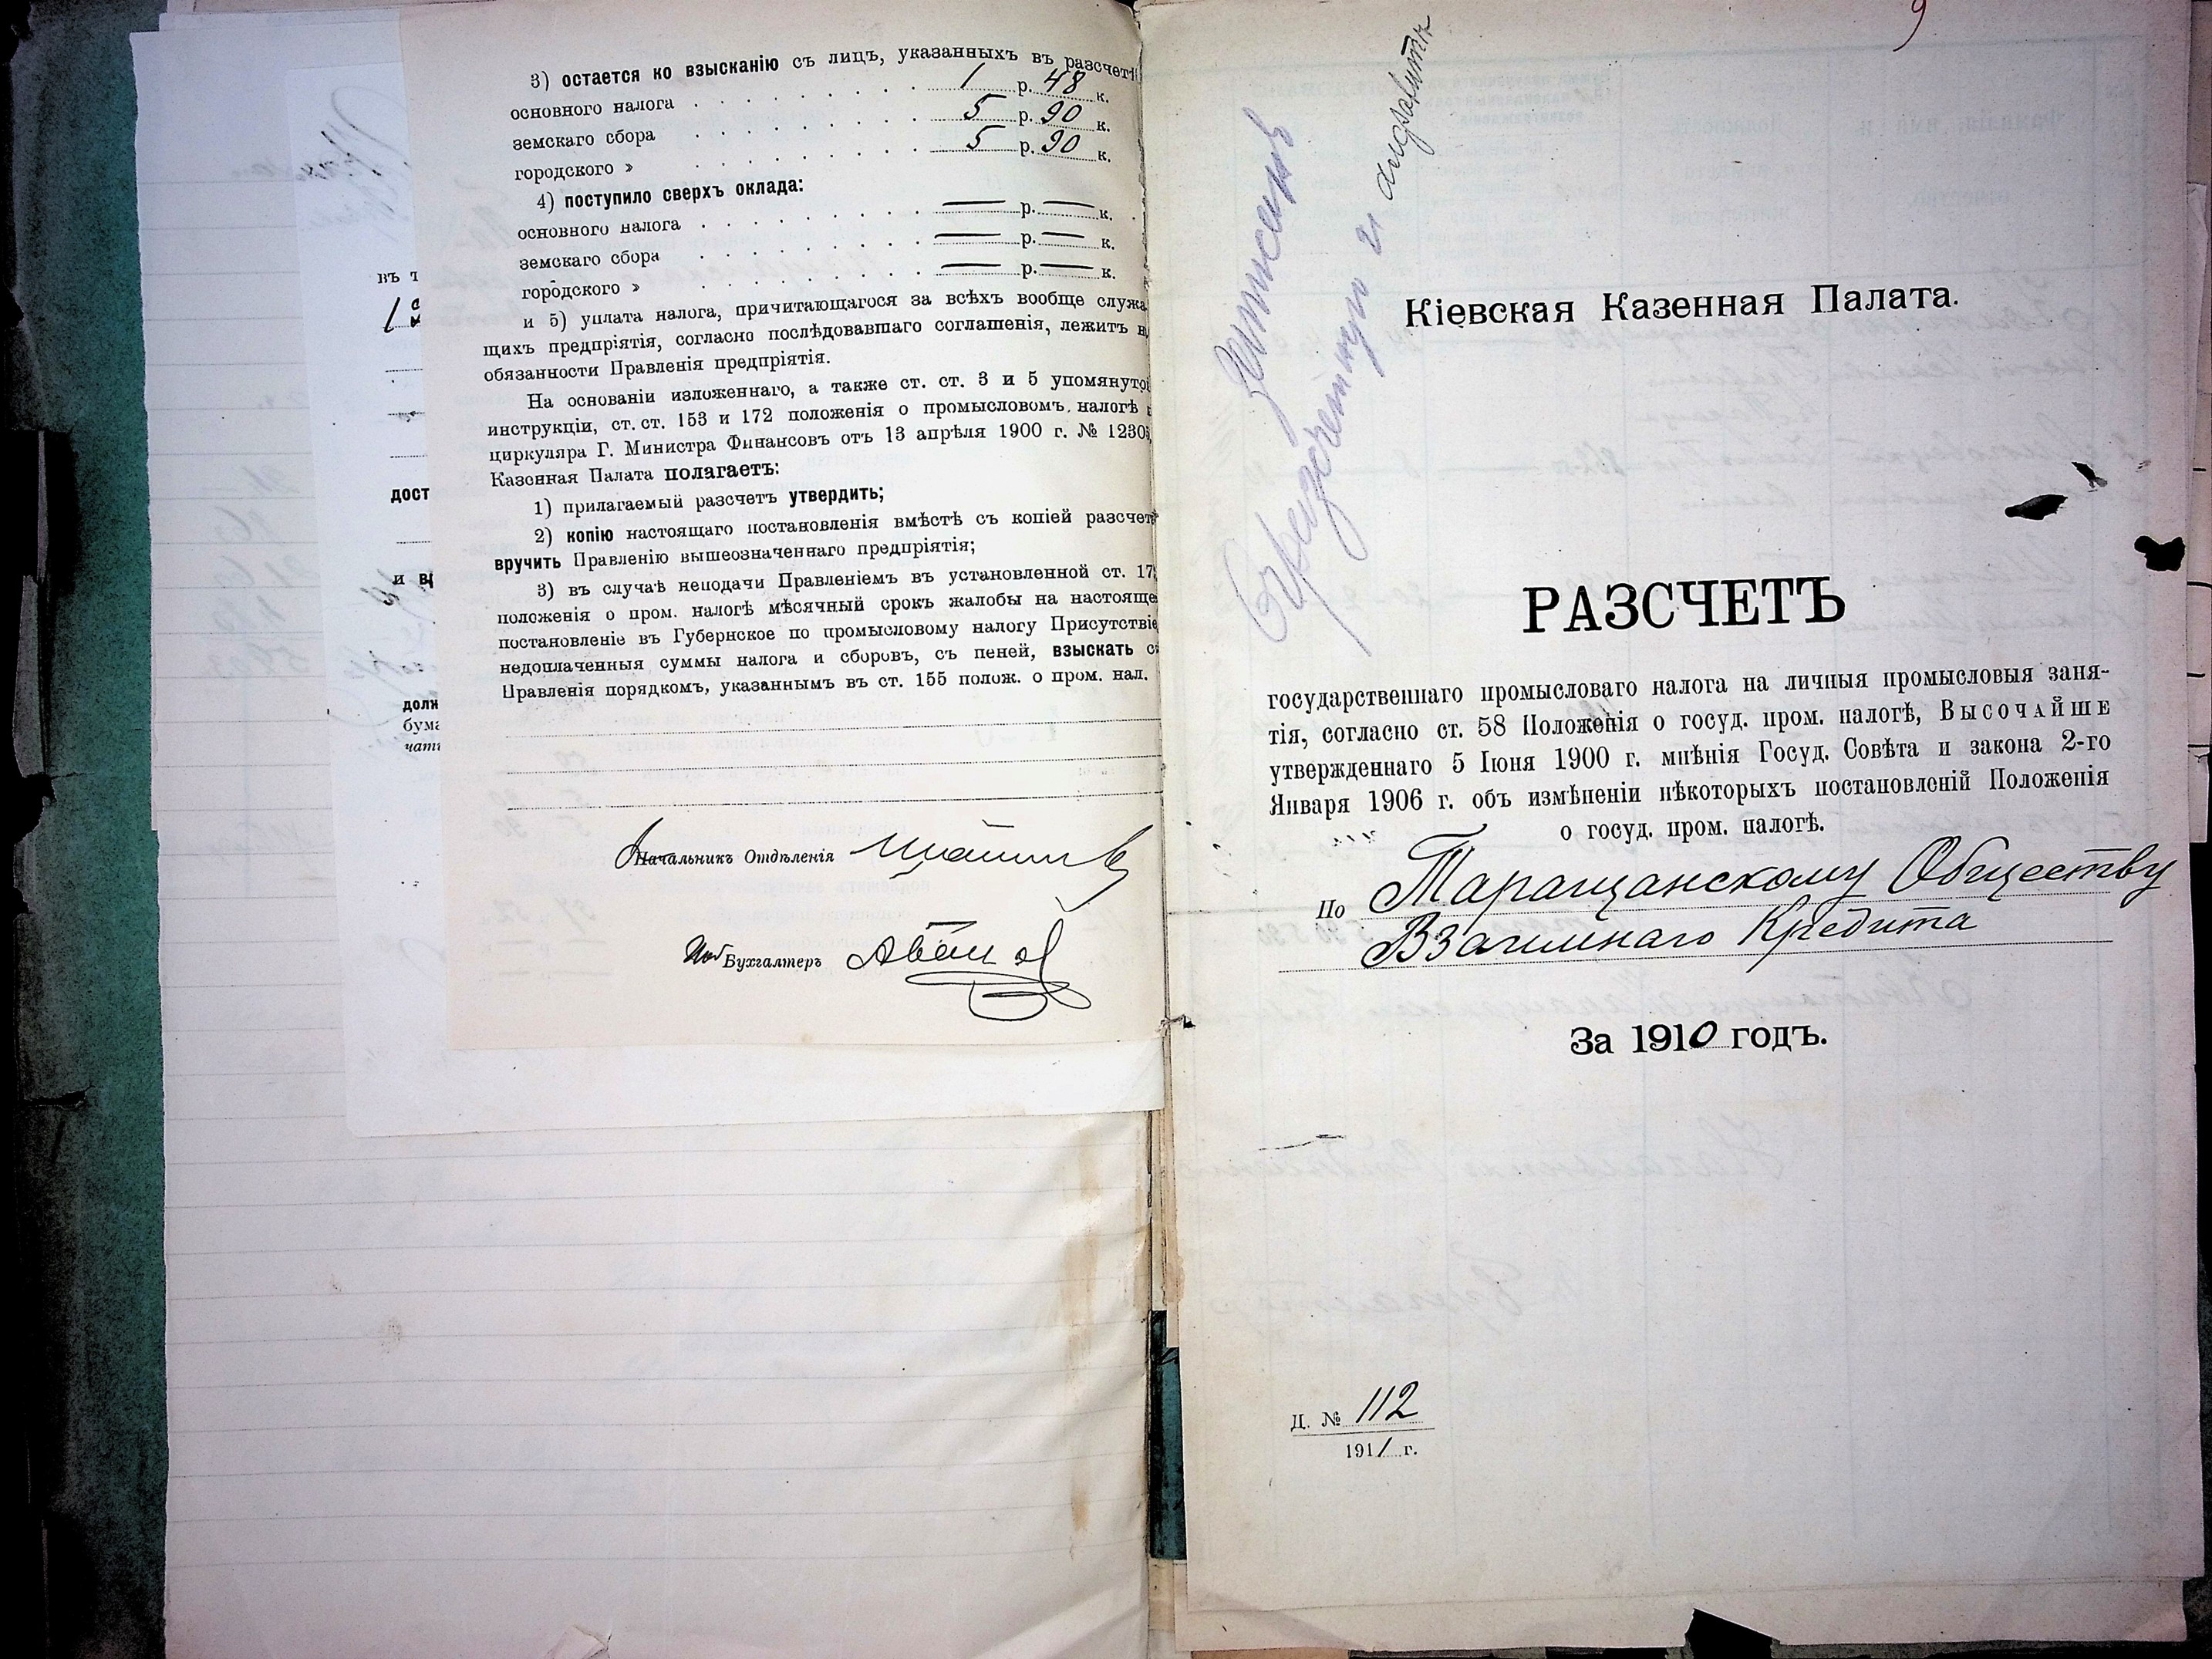 3) остается ко взысканію съ лицъ, указанныхъ въ разсчетѣ
основного налога . . . . . . . . 1 р. 48 к.
земскаго сбора . . . . . . . . 5 р. 90 к.
городского » . . . . . . . . 5 р. 90 к.
4) поступило сверхъ оклада:
основного налога . . . . . . . . — р. — к.
земскаго сбора . . . . . . . . — р. — к.
городского » . . . . . . . . — р. — к.
и 5) уплата налога, причитающагося за всѣхъ вообще служа
щихъ предпріятія, согласно послѣдовавшаго соглашенія, лежитъ н
обязанности Правленія предпріятія.
На основаніи изложеннаго, а также ст. ст. 3 и 5 упомянуто
инструкціи, ст. ст. 153 и 172 положенія о промысловомъ налогѣ
циркуляра Г. Министра Финансовъ отъ 13 апрѣля 1900 г. № 1230
Казенная Палата полагаетъ:
1) прилагаемый разсчетъ утвердить;
2) копію настоящаго постановленія вмѣстѣ съ копіей разсчет
вручить Правленію вышеозначеннаго предпріятія;
3) въ случаѣ неподачи Правленіемъ въ установленной ст. 17
положенія о пром. налогѣ мѣсячный срокъ жалобы на настояще
постановленіе въ Губернское по промысловому налогу Присутствіе
недоплаченныя суммы налога и сборовъ, съ пеней, взыскать с
Правленія порядкомъ, указаннымъ въ ст. 155 полож. о пром. нал.
Начальникъ Отдѣленія
Бухгалтеръ
въ т
дост
и в
долж
бума
чать
9
Кіевская Казенная Палата.
РАЗСЧЕТЪ
государственнаго промысловаго налога на личныя промысловыя заня-
тія, согласно ст. 58 Положенія о госуд. пром. налогѣ, Высочайше
утвержденнаго 5 Іюня 1900 г. мнѣнія Госуд. Совѣта и закона 2-го
Января 1906 г. объ измѣненіи нѣкоторыхъ постановленій Положенія
о госуд. пром. налогѣ.
По Таращанскому Обществу
Взаимнаго Кредита
За 1910 годъ.
Д. № 112
1911 г.